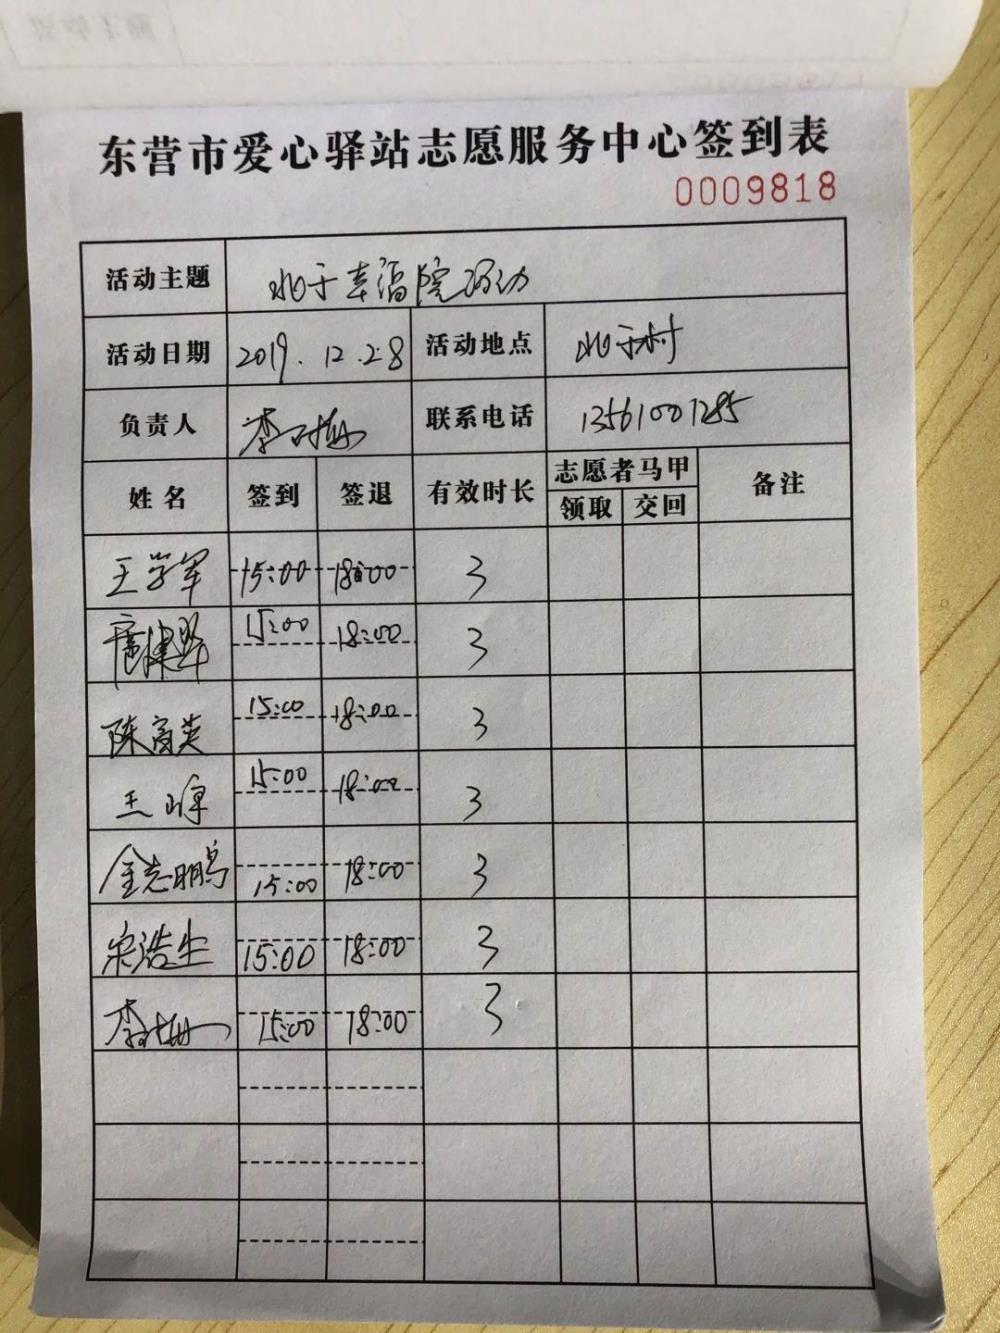 东营市爱心驿站志愿服务中心签到表
0009818
活动主题 北于幸福院活动
活动日期 2019.12.28 活动地点 北于村
负责人 李 梅 联系电话 13561001285
姓名 签到 签退 有效时长 志愿者马甲 备注
领取 交回
王学军 15:00 18:00 3
15:00 18:00 3
陈富英 15:00 18:00 3
王 15:00 18:00 3
金志鹏 15:00 18:00 3
宋浩生 15:00 18:00 3
李 梅 15:00 18:00 3